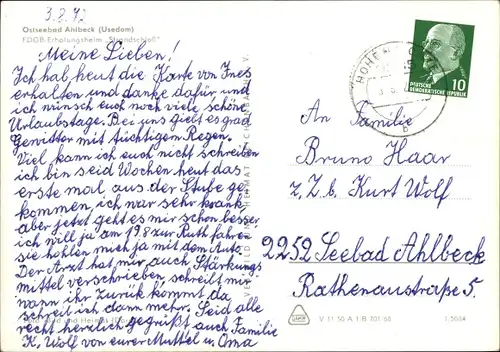 3.8.72
Ostseebad Ahlbeck (Usedom)
FDGB-Erholungsheim „Strandschloß“
Meine Lieben!
Ich hab heut die Karte von Ines
erhalten und danke dafür und
ich wünsch euch noch viele schöne
Urlaubstage. Bei uns giebt es grad
Gewitter mit tüchtigem Regen.
Viel kann ich euch nicht schreiben
ich bin seid Wochen heut das
erste mal aus der Stube ge
kommen, ich war sehr krank
aber jetzt geht es mir schon besser
ich will ja am 19.8 zur Ruth fahren
sie hohlen mich ja mit dem Auto.
Der Arzt hat mir auch Stärkungs
mittel verschrieben, schreibt mir
wann ihr zurück kommt, da
schreib ich dann mehr. Seid alle
recht herzlich gegrüßt auch Familie
K. Wolf von eurer Mutti u. Oma
Bild und Heimat
HOHEN
DEUTSCHE
DEMOKRATISCHE REPUBLIK
10
b
An Familie
Bruno Haar
z. Z. b. Kurt Wolf
2252 Seebad Ahlbeck
Rathenaustraße 5.
V 11 50 A 1/B 701/66
1/5664